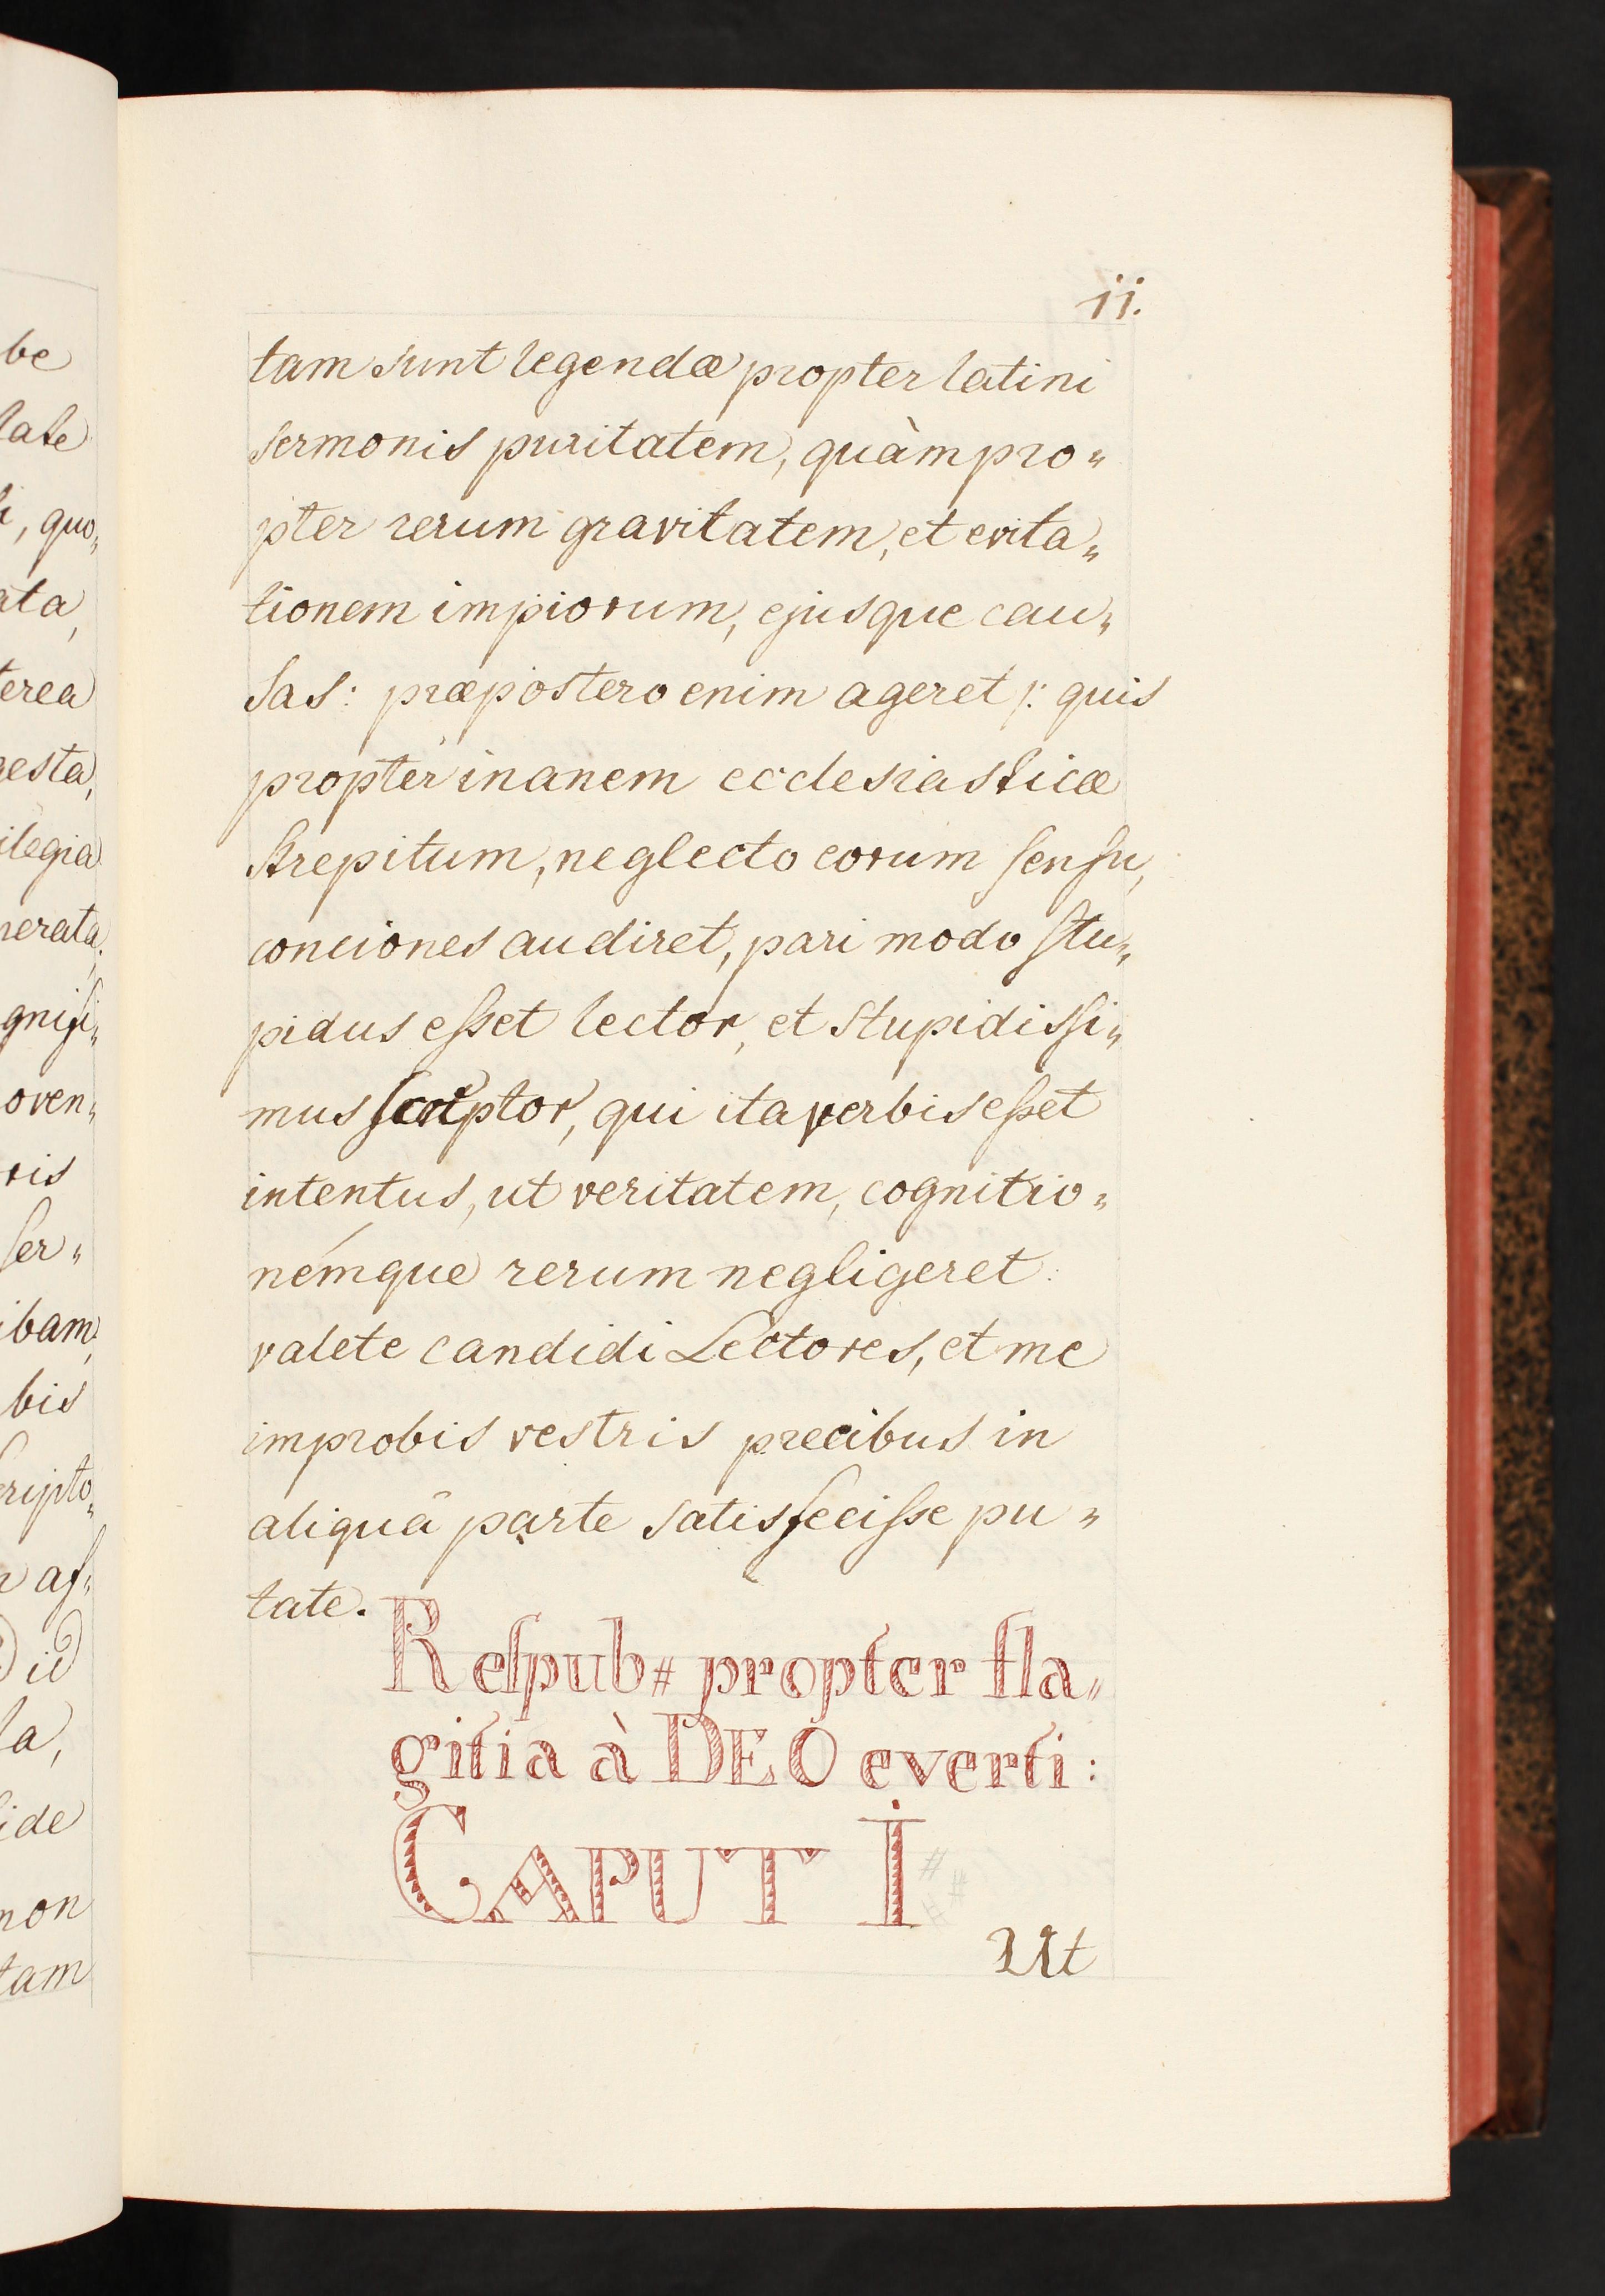 be
late
i, quo„
ata,
terea
gesta,
ilegia
nerata,
gnifi„
oven„
ris
ſer„
ibam,
bis
cripto„
aſ„
id
la,
ide
non
tam
ii.
tam sunt legendæ propter latini
sermonis puritatem, quàm pro„
pter rerum gravitatem, et evita„
tionem impiorum, ejusque cau„
sas: præpostero enim ageret /: quis
propter inanem ecclesiasticæ
strepitum, neglecto eorum ſenſu,
conciones audiret, pari modo ſtu„
pidus eſset lector, et stupidisſi„
mus ſcriptor, qui ita verbis eſset
intentus, ut veritatem, cognitio„
némque rerum negligeret:
valete candidi Lectores, et me
improbis vestris precibus in
aliquâ parte satisfeciſse pu„
tate.
Reſpub# propter fla„
gitia à DEO everti:
CAPUT I
Ut